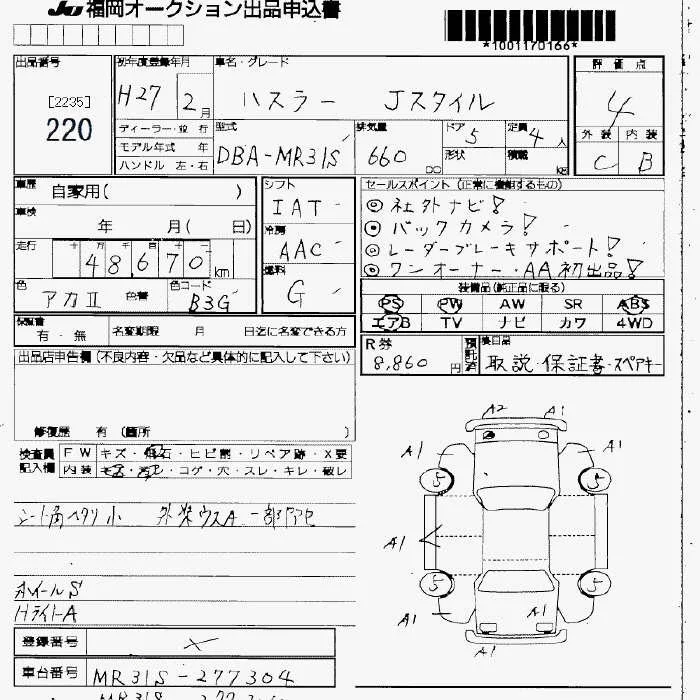 JU 福岡オークション出品申込書
*1001170166*
出品番号
[2235]
220
初年度登録年月
H27 2月
車名・グレード
ハスラー Jスタイル
評価点
4
外装 内装
C B
ディーラー・並行
モデル年式 年
ハンドル 左・右
型式
DBA-MR31S
排気量
660 CC
ドア 5
形状
定員 4 人
積載 KG
車歴 自家用( )
車検 年 月( 日)
走行 十 万 千 百 十 一
48,670 km
色 アカII 色替
色コード B3G
シフト
IAT
冷房
AAC
燃料
G
セールスポイント (正常に機能するもの)
◎ 社外ナビ!
◎ バックカメラ!
◎ レーダーブレーキサポート!
◎ ワンオーナー・AA初出品!
装備品(純正品に限る)
PS PW AW SR ABS
エアB TV ナビ カワ 4WD
有・無 名変期限 月 日迄に名変できる方
R券
8,860 円
預託済
取説・保証書・スペアキー
出品店申告欄(不良内容・欠品など具体的に記入して下さい)
修復歴 有 (箇所 )
検査員記入欄
FW キズ・飛石・ヒビ割・リペア跡・X要
内装 キズ・汚レ・コゲ・穴・スレ・キレ・破レ
シート角ヘタリ小 外装ウスA
ホイールS
HライトA
登録番号
車台番号 MR31S-277304
A2 A1
A1 A1
5 5
A1
5 5
A1 A1 A1
A1